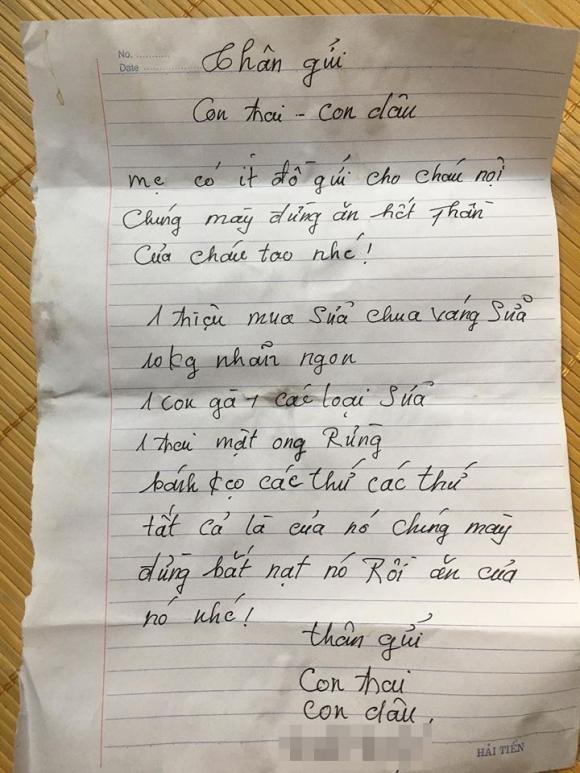 No. ..........
Date ..............
Thân gửi
Con trai - Con dâu
Mẹ có ít đồ gửi cho cháu nội
Chúng mày đừng ăn hết Thần
Của cháu tao nhé!
1 triệu mua Sữa chua váng Sữa
10kg nhãn ngon
1 con gà + các loại Sữa
1 chai mật ong Rừng
bánh kẹo các thứ các thứ
tất cả là của nó chúng mày
đừng bắt nạt nó Rồi ăn của
nó nhé!
thân gửi
Con trai
Con dâu.
HẢI TIẾN